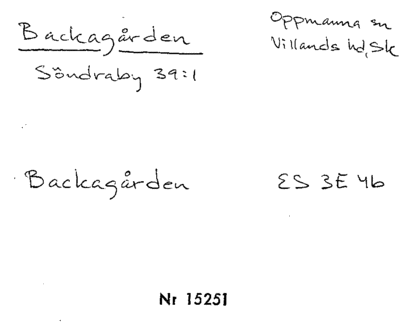 Backagården
Oppmanna sn
Villands hd, Sk
Söndraby 39:1
Backagården
ES 3E 4b
Nr 15251